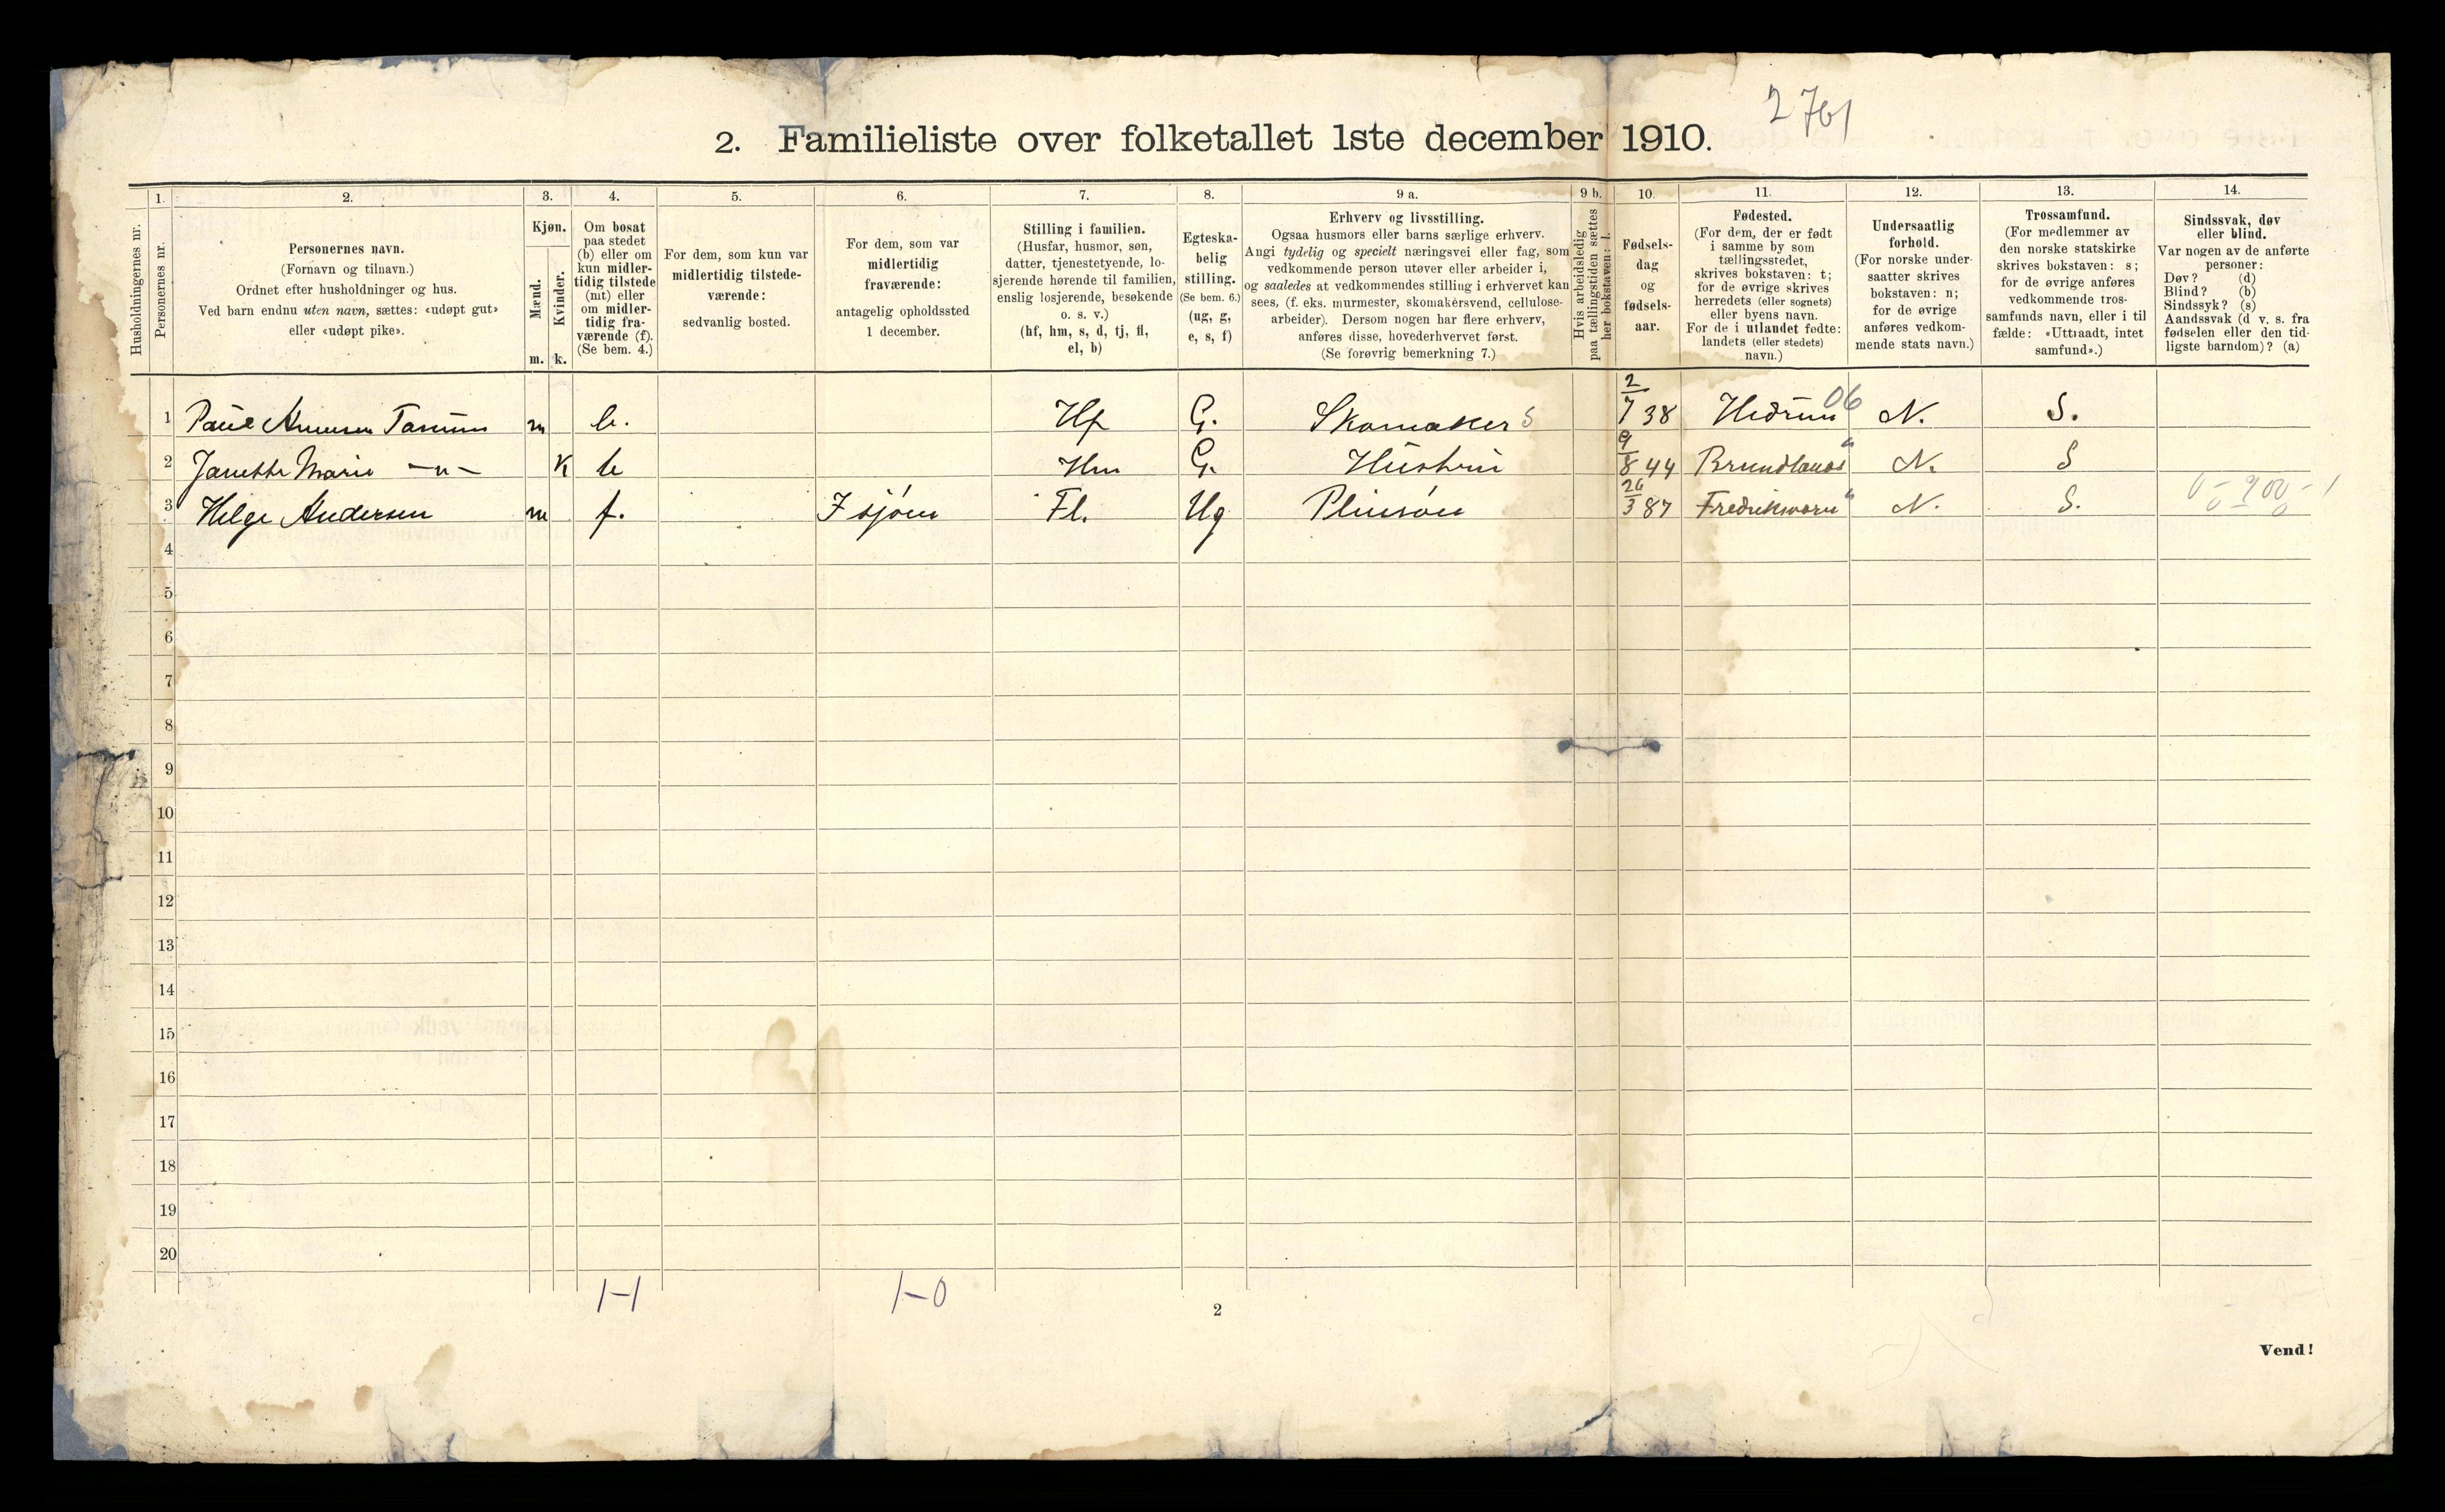 2 761
2. Familieliste over folketallet 1ste december 1910.
1. 2. 3. 4. 5. 6. 7. 8. 9 a. 9 b. 10. 11. 12. 13. 14.
Husholdningernes nr.
Personernes nr.
Personernes navn.
(Fornavn og tilnavn.)
Ordnet efter husholdninger og hus.
Ved barn endnu uten navn, sættes: «udøpt gut»
eller «udøpt pike».
Kjøn.
Mænd.
Kvinder.
m. k.
Om bosat
paa stedet
(b) eller om
kun midler-
tidig tilstede
(mt) eller
om midler-
tidig fra-
værende (f).
(Se bem. 4.)
For dem, som kun var
midlertidig tilstede-
værende:
sedvanlig bosted.
For dem, som var
midlertidig
fraværende:
antagelig opholdssted
1 december.
Stilling i familien.
(Husfar, husmor, søn,
datter, tjenestetyende, lo-
sjerende hørende til familien,
enslig losjerende, besøkende
o. s. v.)
(hf, hm, s, d, tj, fl,
el, b)
Egteska-
belig
stilling.
(Se bem. 6.)
(ug, g,
e, s, f)
Erhverv og livsstilling.
Ogsaa husmors eller barns særlige erhverv.
Angi tydelig og specielt næringsvei eller fag, som
vedkommende person utøver eller arbeider i,
og saaledes at vedkommendes stilling i erhvervet kan
sees, (f. eks. murmester, skomakersvend, cellulose-
arbeider). Dersom nogen har flere erhverv,
anføres disse, hovederhvervet først.
(Se forøvrig bemerkning 7.)
Hvis arbeidsledig
paa tællingstiden sættes
her bokstaven: l.
Fødsels-
dag
og
fødsels-
aar.
Fødested.
(For dem, der er født
i samme by som
tællingsstedet,
skrives bokstaven: t;
for de øvrige skrives
herredets (eller sognets)
eller byens navn.
For de i utlandet fødte:
landets (eller stedets)
navn.)
Undersaatlig
forhold.
(For norske under-
saatter skrives
bokstaven: n;
for de øvrige
anføres vedkom-
mende stats navn.)
Trossamfund.
(For medlemmer av
den norske statskirke
skrives bokstaven: s;
for de øvrige anføres
vedkommende tros-
samfunds navn, eller i til
fælde: «Uttraadt, intet
samfund».)
Sindssvak, døv
eller blind.
Var nogen av de anførte
personer:
Døv? (d)
Blind? (b)
Sindssyk? (s)
Aandssvak (d v. s. fra
fødselen eller den tid-
ligste barndom)? (a)
1 Tanum m b. Hf G. Skomaker S 2/7 38 Hedrum 06 N. S.
2 Janette Marie —"— K b Hm G. Hustru 9/8 44 Brundlanes " N. S
3 Helge Andersen m f. I sjøen Fl. Ug 26/3 87 Fredriksværn " N. S.
4
5
6
7
8
9
10
11
12
13
14
15
16
17
18
19
20
1-1 1-0
2
Vend!